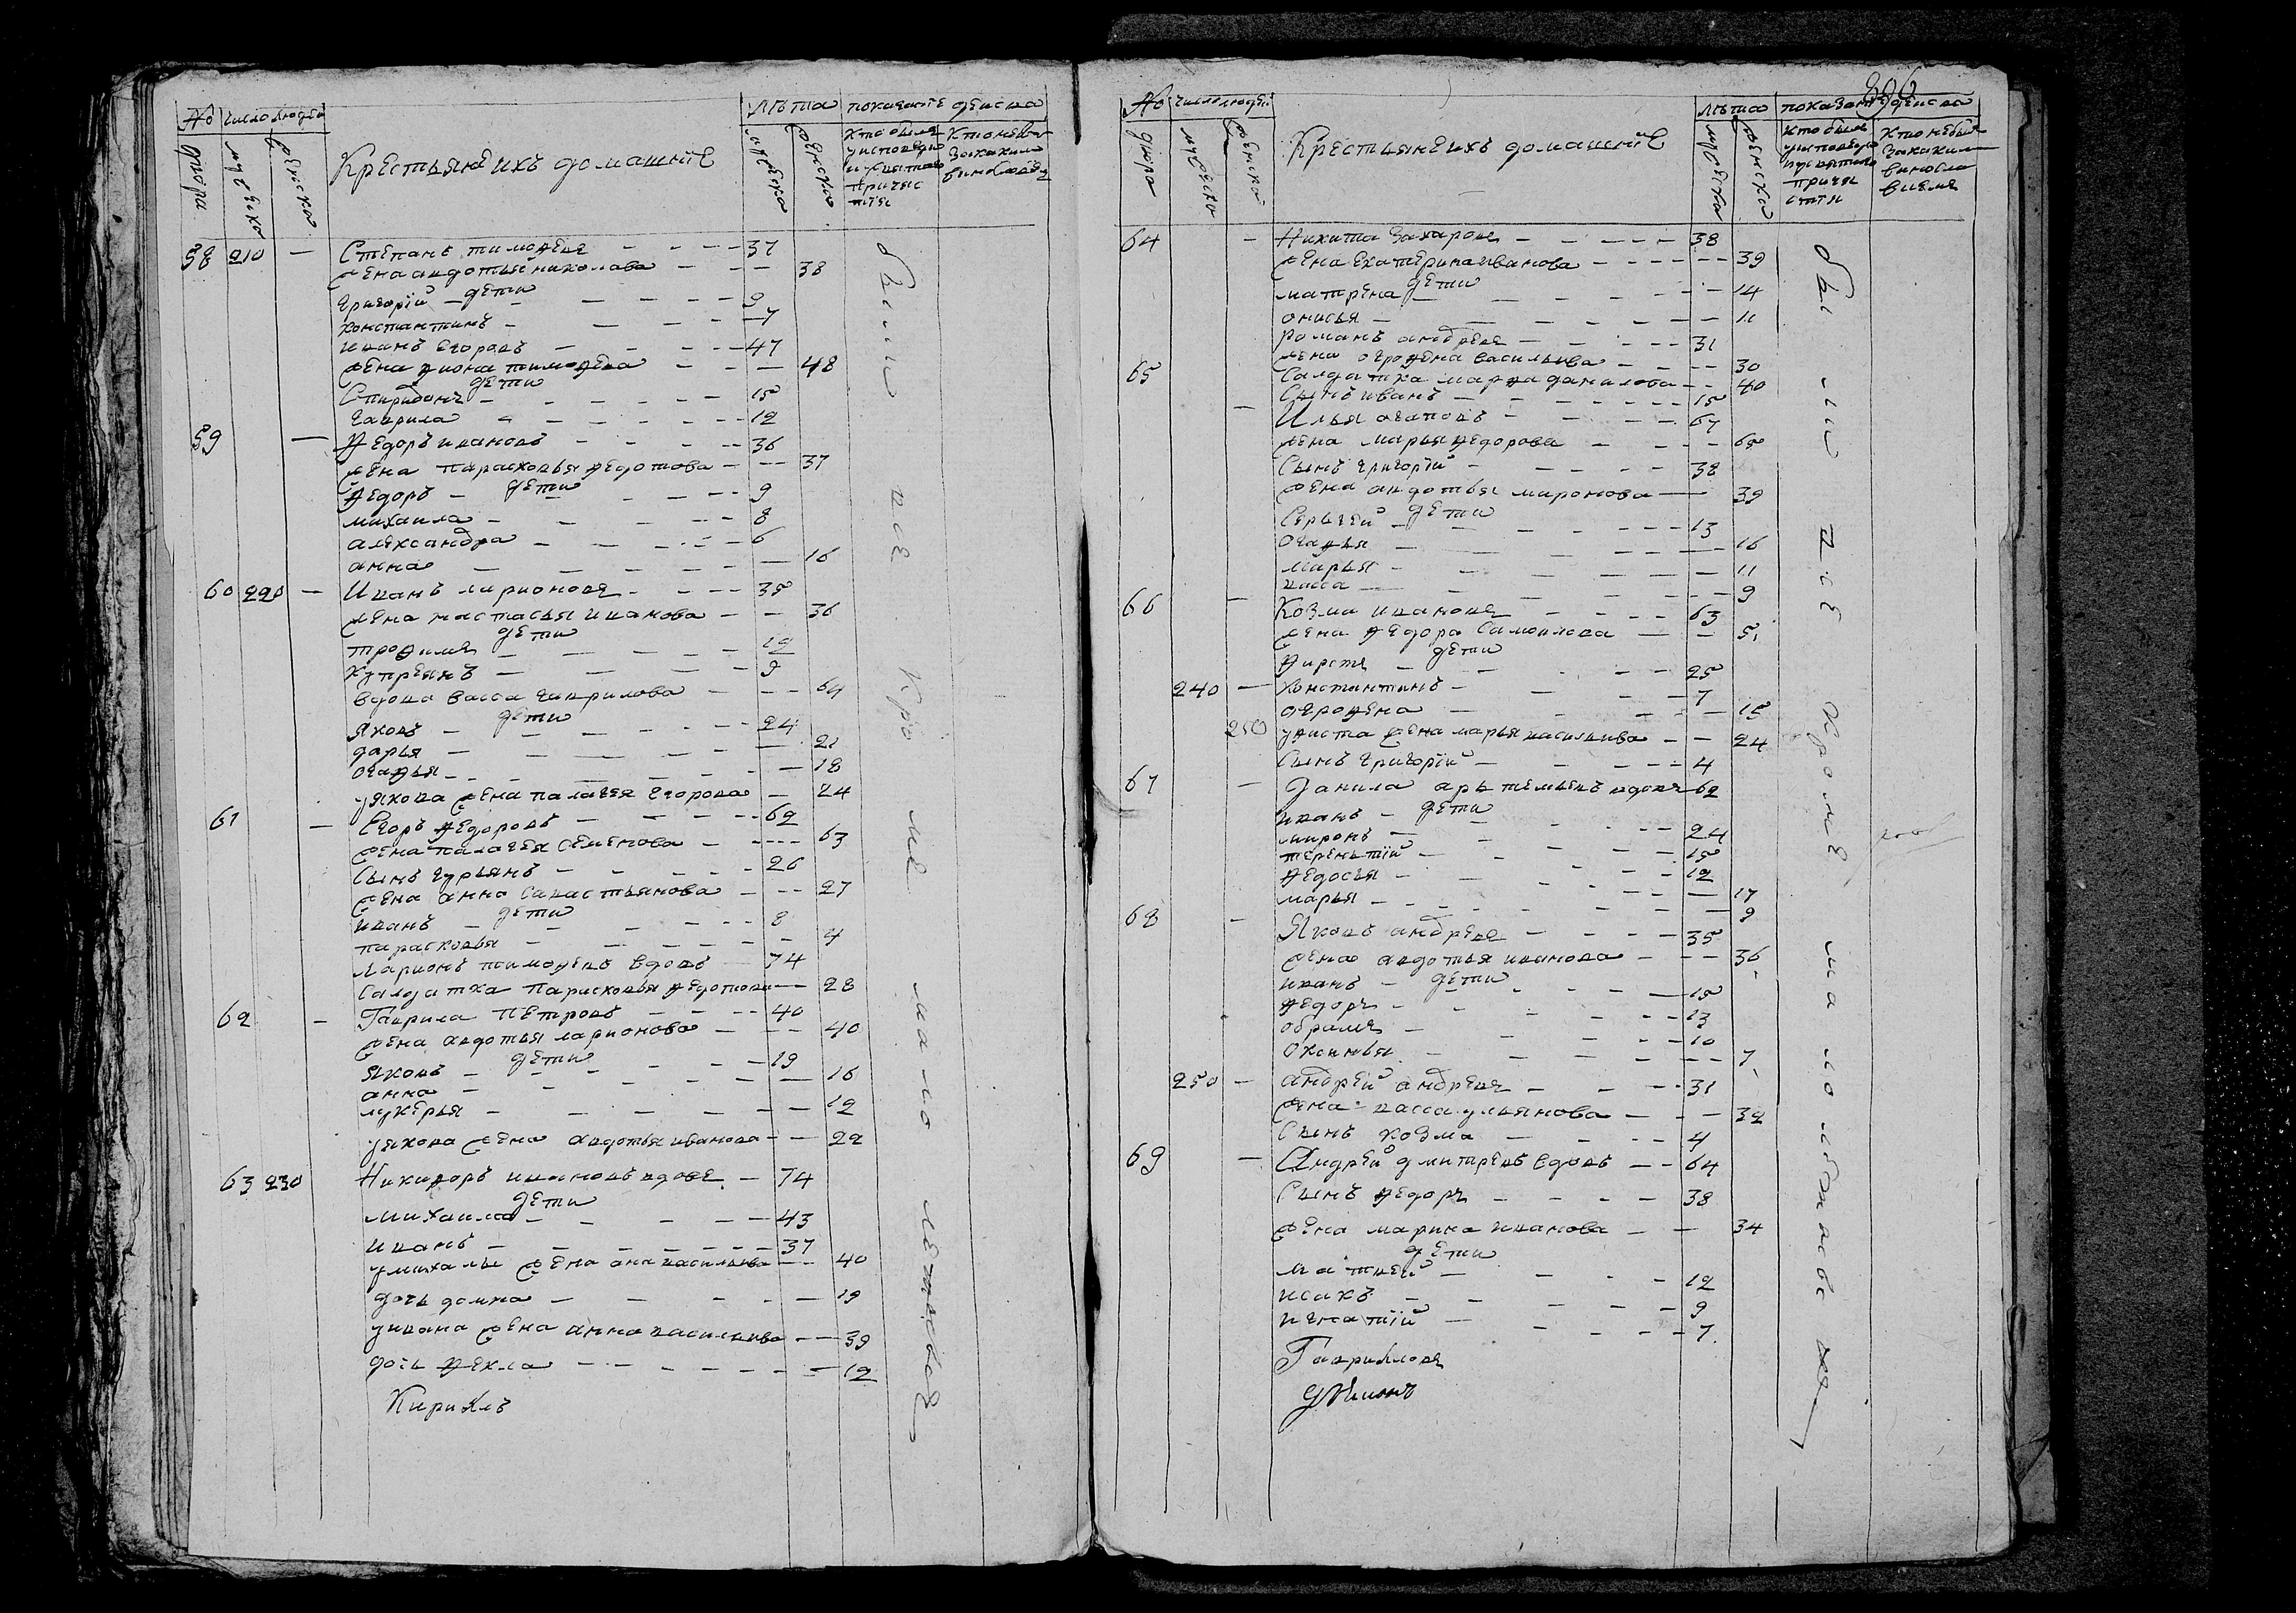 № число людей лѣта показание действа
двора мужеска женска Крестьяне ихъ домашніе мужеска женска кто былъ у исповеди и святаго причастія кто не былъ за какимъ винословіем
58 210 — Степанъ тимофѣевъ — 37
жена авдотья николаева — 38
дети
григорій — 9
константинъ — 7
иванъ егоровъ — 47
жена тимофѣева — 48
дети
Спиридонъ — 15
гаврила — 12
59 — Ѳедоръ ивановъ — 36
жена парасковья ѳедотова — 37
дети
Ѳедоръ — 9
михаила — 8
александра — 6
анна — 16
60 220 — Иванъ ларионовъ — 35
жена настасья иванова — 36
дети
трофимъ — 12
купреянъ — 9
вдова васса гаврилова — 64
дети
Яковъ — 24
дарья — 21
огафья — 18
у якова жена палагея егорова — 24
61 — Егоръ ѳедоровъ — 62
жена палагея семенова — 63
сынъ гурьянъ — 26
жена анна савастьянова — 27
дети
иванъ — 8
парасковья — 4
Ларионъ тимофѣевъ вдовъ — 74
Салдатка парасковья ѳедотова — 28
62 — Гаврила петровъ — 40
жена авдотья ларионова — 40
дети
Яковъ — 19
анна — 16
лукерья — 12
у якова жена авдотья иванова — 22
63 230 Никифоръ ивановъ вдовъ — 74
дети
михаила — 43
иванъ — 37
у михаилы жена анна васильева — 40
дочь домна — 19
у ивана жена анна васильева — 39
дочь ѳекла — 12
Кириллъ
были все кроме малолетныхъ
896
№ число людей лѣта показание действа
двора мужеска женска Крестьяне ихъ домашніе мужеска женска кто былъ у исповеди и святаго причастія кто не былъ за какимъ винословіемъ
64 — Никита Захаровъ — 38
жена екатерина иванова — 39
дети
матрена — 14
онисья — 11
романъ андреевъ — 31
жена огрофена васильева — 30
65 Салдатка марфа данилова — 40
Сынъ иванъ — 15
— Илья агаповъ — 67
жена марья ѳедорова — 65
Сынъ григорій — 38
жена авдотья миронова — 39
дети
Сергей — 13
огафья — 16
марья — 11
васса — 9
66 — Козма ивановъ — 63
жена ѳедора Самоилова — 51
дети
Ѳирсъ — 25
240 — константинъ — 7
огрофена — 15
250 у ѳирста жена марья васильева — 24
Сынъ григорій — 4
67 — Данила артемьевъ вдовъ 62
дети
иванъ — 24
миронъ — 15
терентій — 12
ѳедосья — 17
марья — 9
68 — Яковъ андреевъ — 35
жена авдотья иванова — 36
дети
иванъ — 15
ѳедоръ — 13
обрамъ — 10
оксинья — 7
250 — андрей андреевъ — 31
жена васса ульянова — 32
Сынъ козма — 4
69 — Андрей дмитревъ вдовъ — 64
Сынъ ѳедоръ — 38
жена марина иванова — 34
дети
матвей — 12
исакъ — 9
игнатій — 7
Гавриловъ
были все кроме малолетныхъ